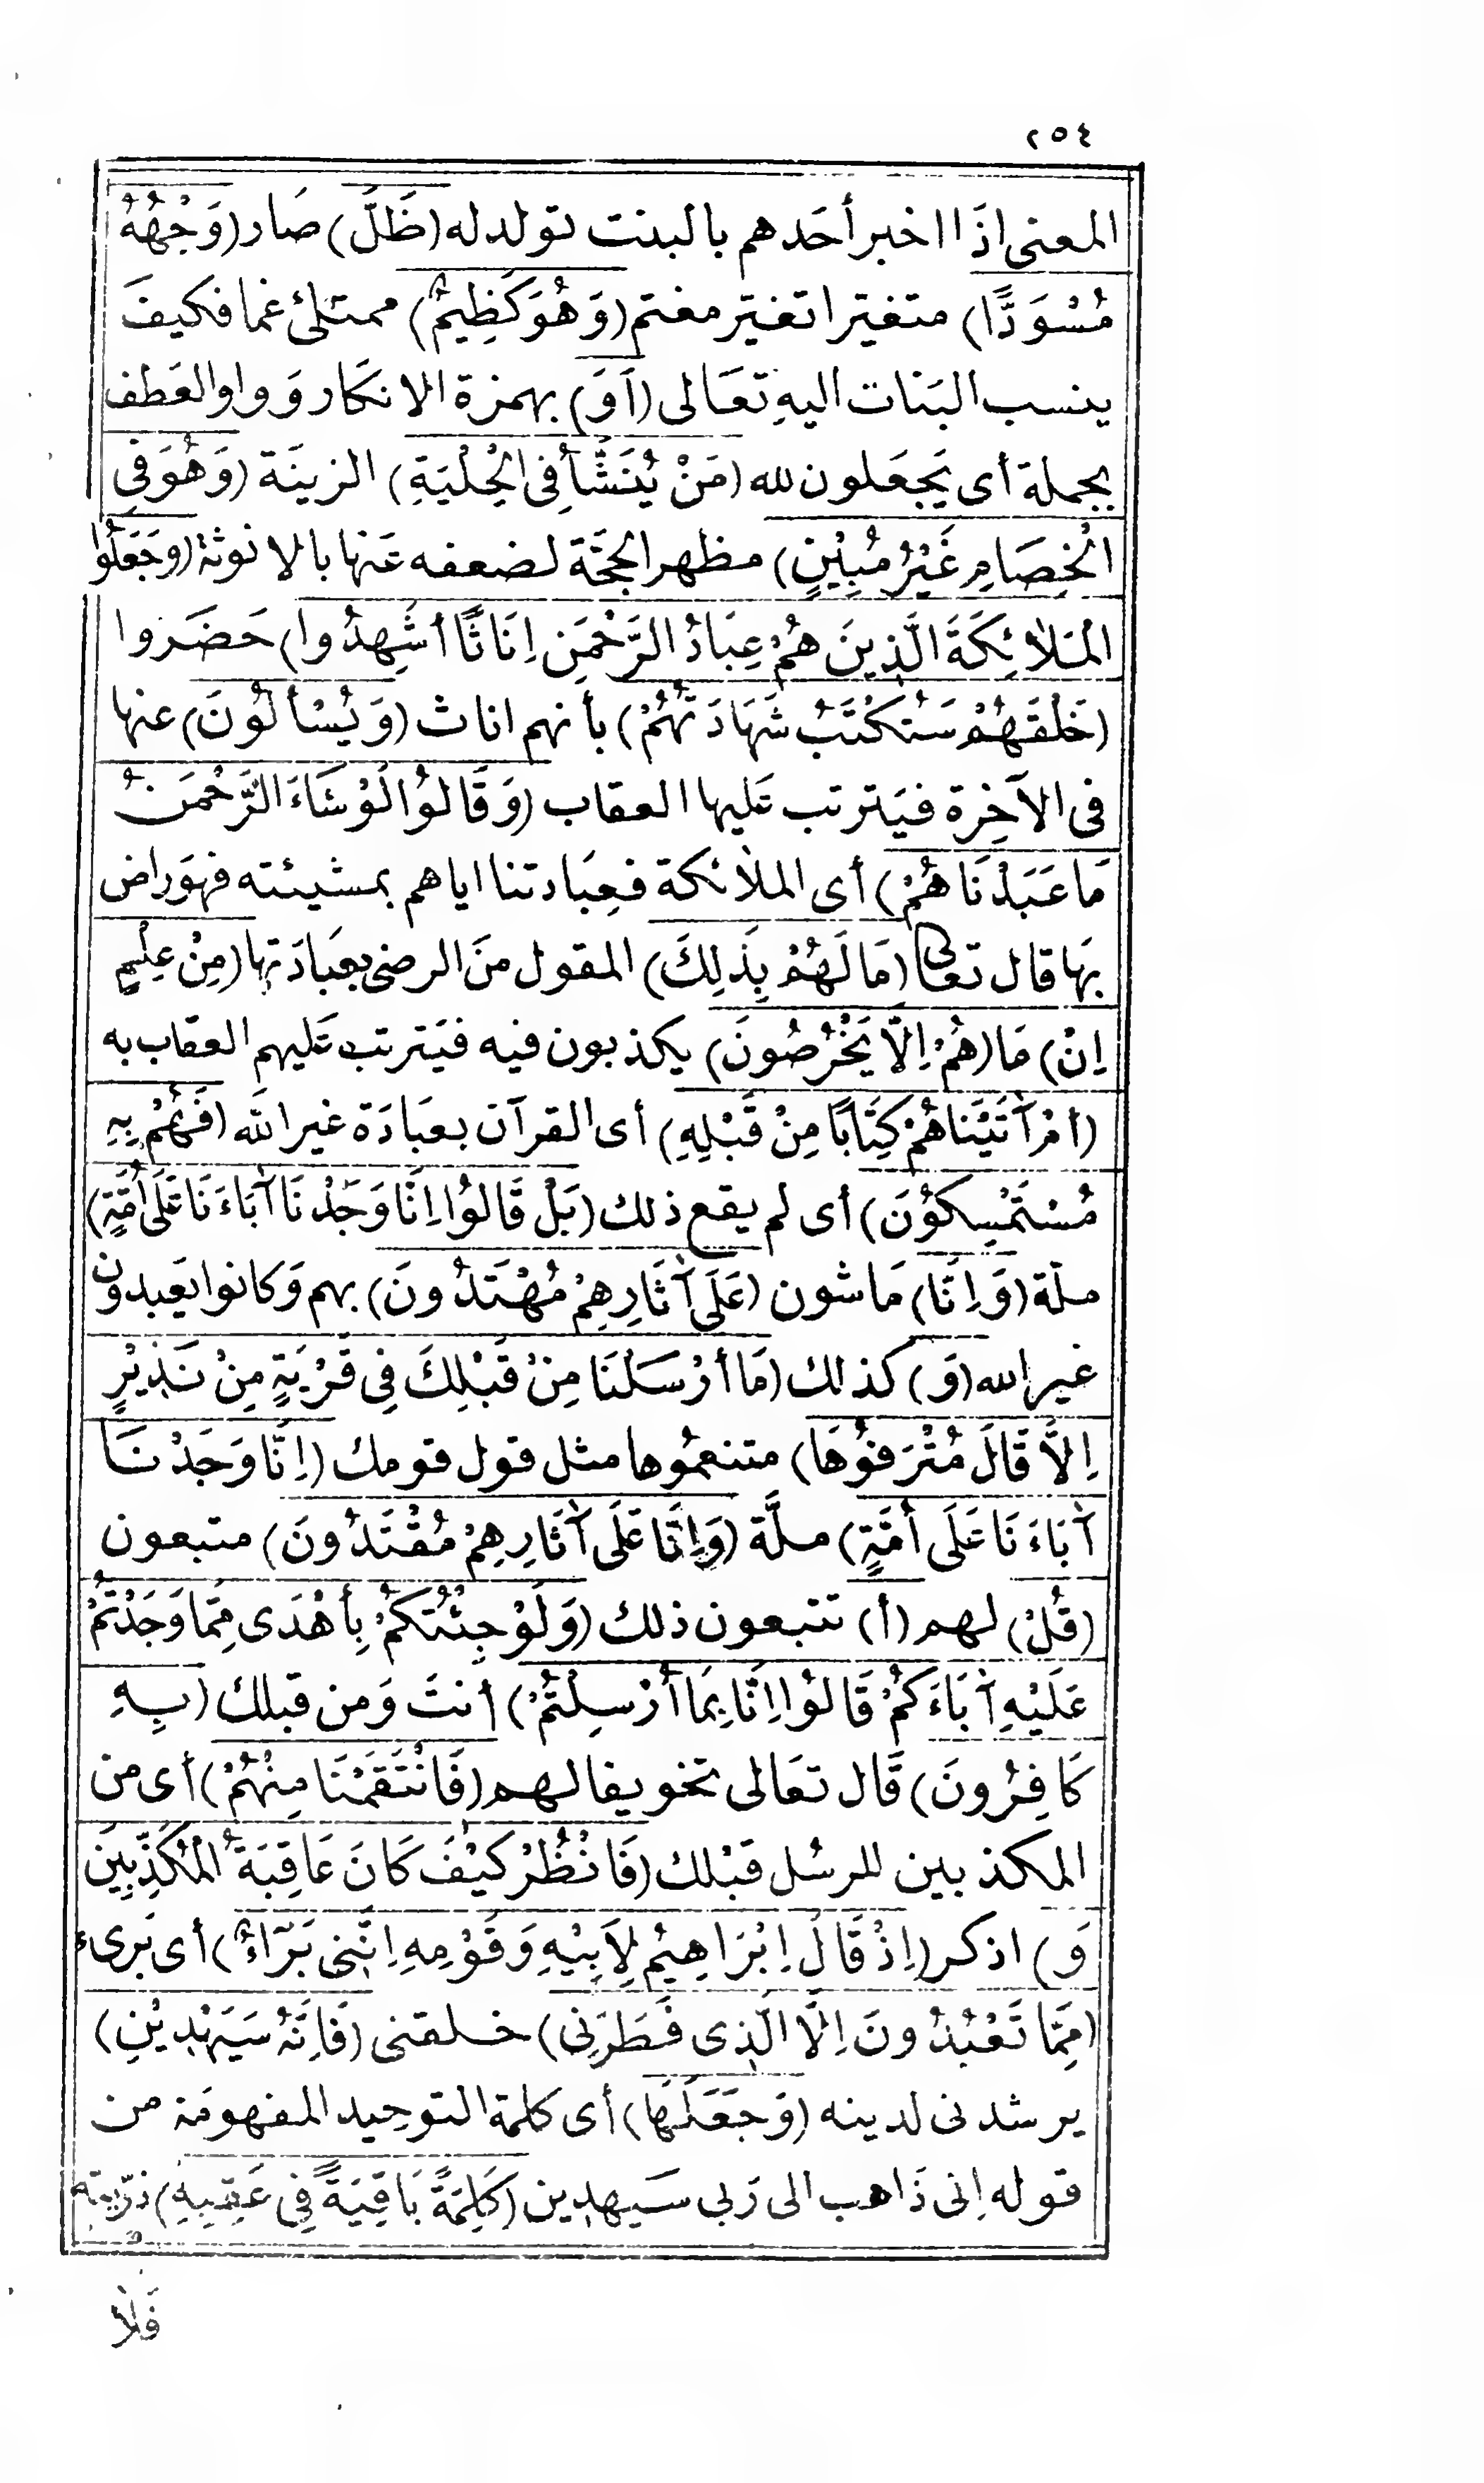 ٢٥٤
المعنى اذَا اخبر أحَدهم بالبنت تولد له (ظَلَّ) صَار (وَجْهُهُ
مُسْوَدًّا) متغيرا تغير مغتم (وَهُوَ كَظِيمٌ) ممتلئ غما فكيفَ
ينسب البَنات اليهِ تعَالى (أَوَ) بهمزة الانكار وَواو العَطف
بجملة أى يَجعَلون لله (مَنْ يُنَشَّأُ فِى الْحِلْيَةِ) الزينَة (وَهُوَ فِى
الْخِصَامِ غَيْرُ مُبِيْنٍ) مظهر الحجّة لضعفه عَنها بالانوثة (وَجَعَلُوا
الْمَلاَئِكَةَ الَّذِينَ هُمْ عِبَادُ الرَّحْمَنِ اِنَاثًا أَشَهِدُوا) حَضَروا
(خَلْقَهُمْ سَتُكْتَبُ شَهَادَتُهُمْ) بأنهم اناث (وَيُسْأَلُونَ) عنها
فى الآخِرة فيَترتب عَليها العقاب (وَقَالُوْا لَوْ شَاءَ الرَّحْمَنُ
مَا عَبَدْنَاهُمْ) أى الملائكة فعِبَادتنا اياهم بمشيئته فهوَ راض
بهَا قال تعالى (مَا لَهُمْ بِذَلِكَ) المقول منَ الرضى بعِبَادَتها (مِنْ عِلْمٍ
اِنْ) مَا (هُمْ اِلاَّ يَخْرُصُونَ) يكذبون فيه فيَترتب عَليهم العقاب به
(أَمْ آتَيْنَاهُمْ كِتَابًا مِنْ قَبْلِهِ) أى القرآن بعبَادَة غير الله (فَهُمْ بِهِ
مُسْتَمْسِكُوْنَ) أى لم يقع ذلك (بَلْ قَالُوْا اِنَّا وَجَدْنَا آبَاءَنَا عَلَى أُمَّةٍ)
ملّة (وَاِنَّا) مَاشون (عَلَى آثَارِهِمْ مُهْتَدُونَ) بهم وَكانوا يَعبدون
غير الله (وَ) كذلك (مَا أَرْسَلْنَا مِنْ قَبْلِكَ فِى قَرْيَةٍ مِنْ نَذِيْرٍ
اِلاَّ قَالَ مُتْرَفُوْهَا) متنعمُوها مثل قول قومك (اِنَّا وَجَدْنَا
آبَاءَنَا عَلَى أُمَّةٍ) ملَّة (وَاِنَّا عَلَى آثَارِهِمْ مُقْتَدُونَ) متبعون
(قُلْ) لهم (أَ) تتبعون ذلك (وَلَوْ جِئْتُكُمْ بِأَهْدَى مِمَّا وَجَدْتُمْ
عَلَيْهِ آبَاءَكُمْ قَالُوْا اِنَّا بِمَا أُرْسِلْتُمْ) أنتَ وَمن قبلك (بِهِ
كَافِرُونَ) قَال تعَالى تخويفا لهم (فَانْتَقَمْنَا مِنْهُمْ) أى من
المكذبين للرسُل قبْلك (فَانْظُرْ كَيْفَ كَانَ عَاقِبَةُ الْمُكَذِّبِيْنَ
وَ) اذكر (اِذْ قَالَ اِبْرَاهِيْمُ لِأَبِيْهِ وَقَوْمِهِ اِنَّنِى بَرَآءٌ) أى بَرىء
(مِمَّا تَعْبُدُونَ اِلَّا الَّذِى فَطَرَنِى) خلقنى (فَاِنَّهُ سَيَهْدِيْنِ)
يرشدنى لدينه (وَجَعَلَهَا) أى كلمة التوحيد المفهومَة من
قوله اِنى ذَاهب الى رَبى سَيهدين (كَلِمَةً بَاقِيَةً فِى عَقِبِهِ) ذرّيته
فَلاَ